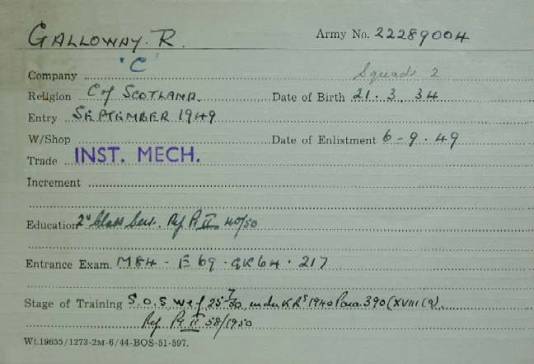 GALLOWAY. R. Army No. 22289004
Company "C" Squad 2
Religion C of SCOTLAND. Date of Birth 21. 3. 34
Entry SEPTEMBER 1949
W/Shop Date of Enlistment 6-9-49
Trade INST. MECH.
Increment
Education 2nd Class Cert. Ref Pt II 40/50
Entrance Exam. M84 - E 69 - GK 64 - 217
Stage of Training S.O.S w.e.f 25/7/50 under K.Rs 1940 Para. 390 (XVIII)(a).
Ref Pt II 58/1950
Wt.19635/1273-2M-6/44-BOS-51-597.